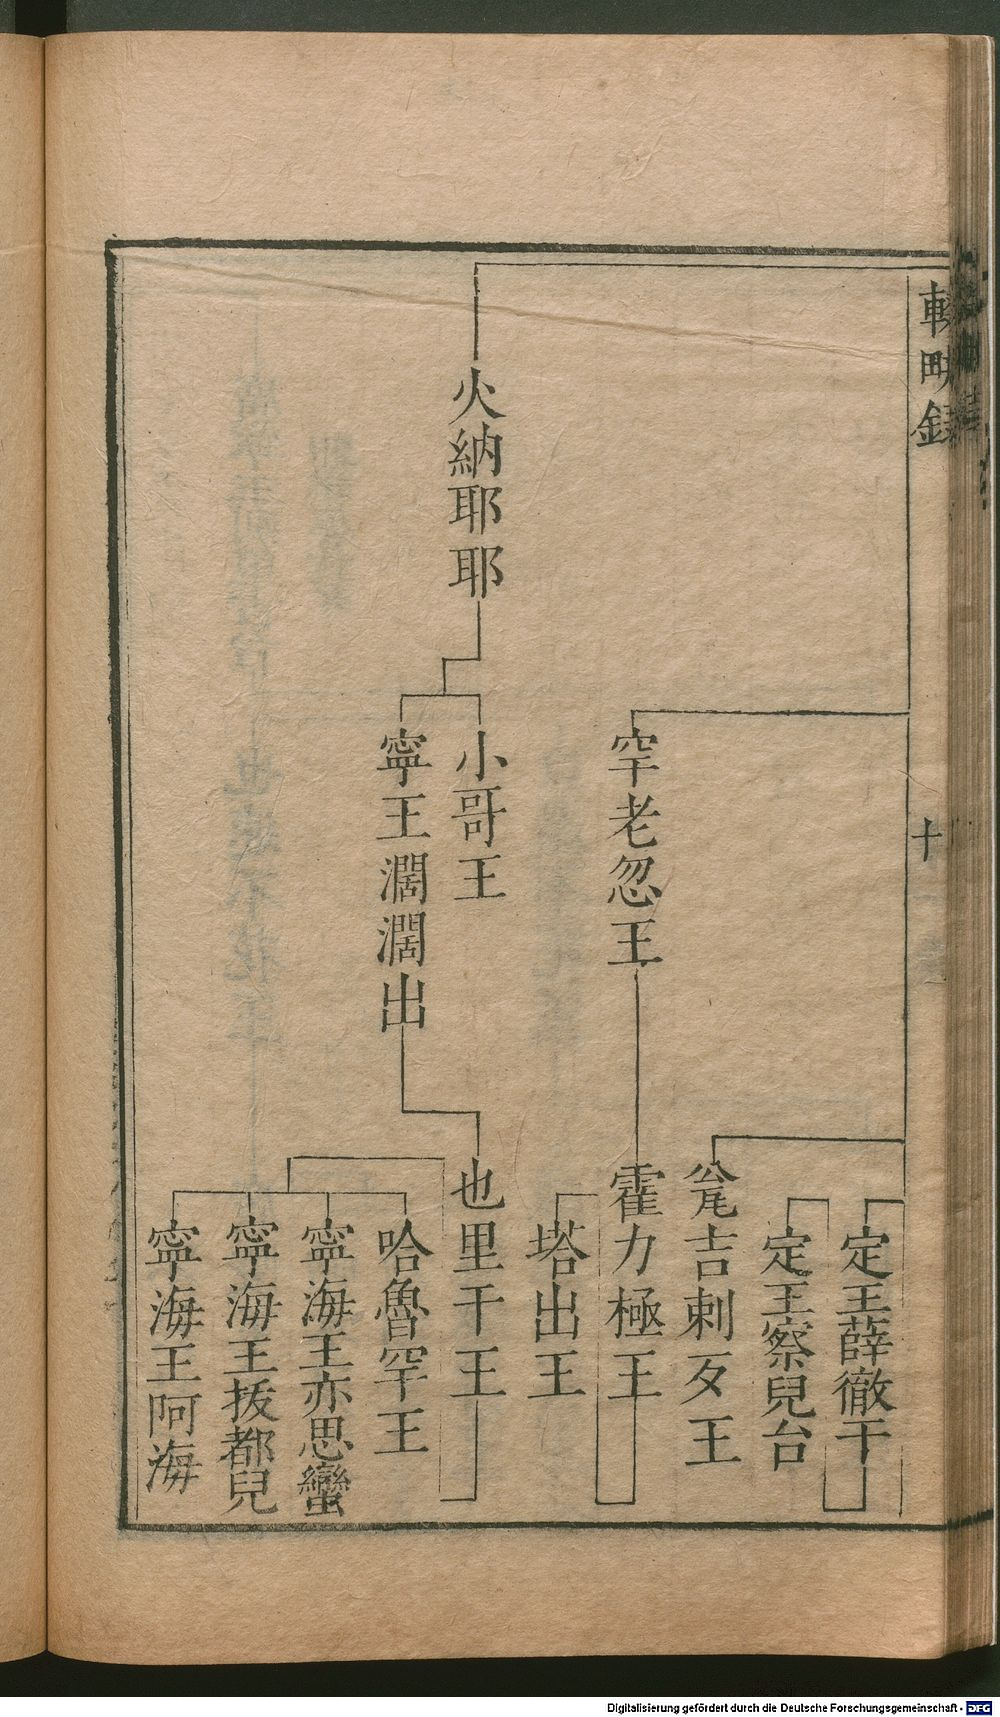 輟畊録
十
定王薛徹干
定王察兒台
瓮吉剌歹王
罕老忽王
霍力極王
塔出王
火納耶耶
小哥王
寧王濶濶出
也里干王
哈魯罕王
寧海王亦思蠻
寧海王拔都兒
寧海王阿海
Digitalisierung gefördert durch die Deutsche Forschungsgemeinschaft - DFG